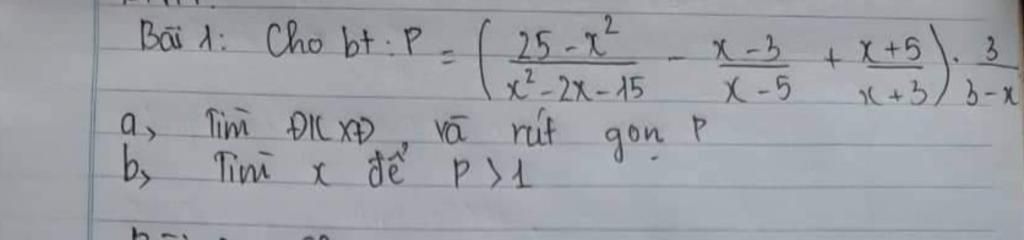 Bài 1: Cho bt: P = ( (25 - x²)/(x² - 2x - 15) - (x - 3)/(x - 5) + (x + 5)/(x + 3) ) . 3/(3 - x)
a, Tìm ĐKXĐ và rút gọn P
b, Tìm x để P > 1